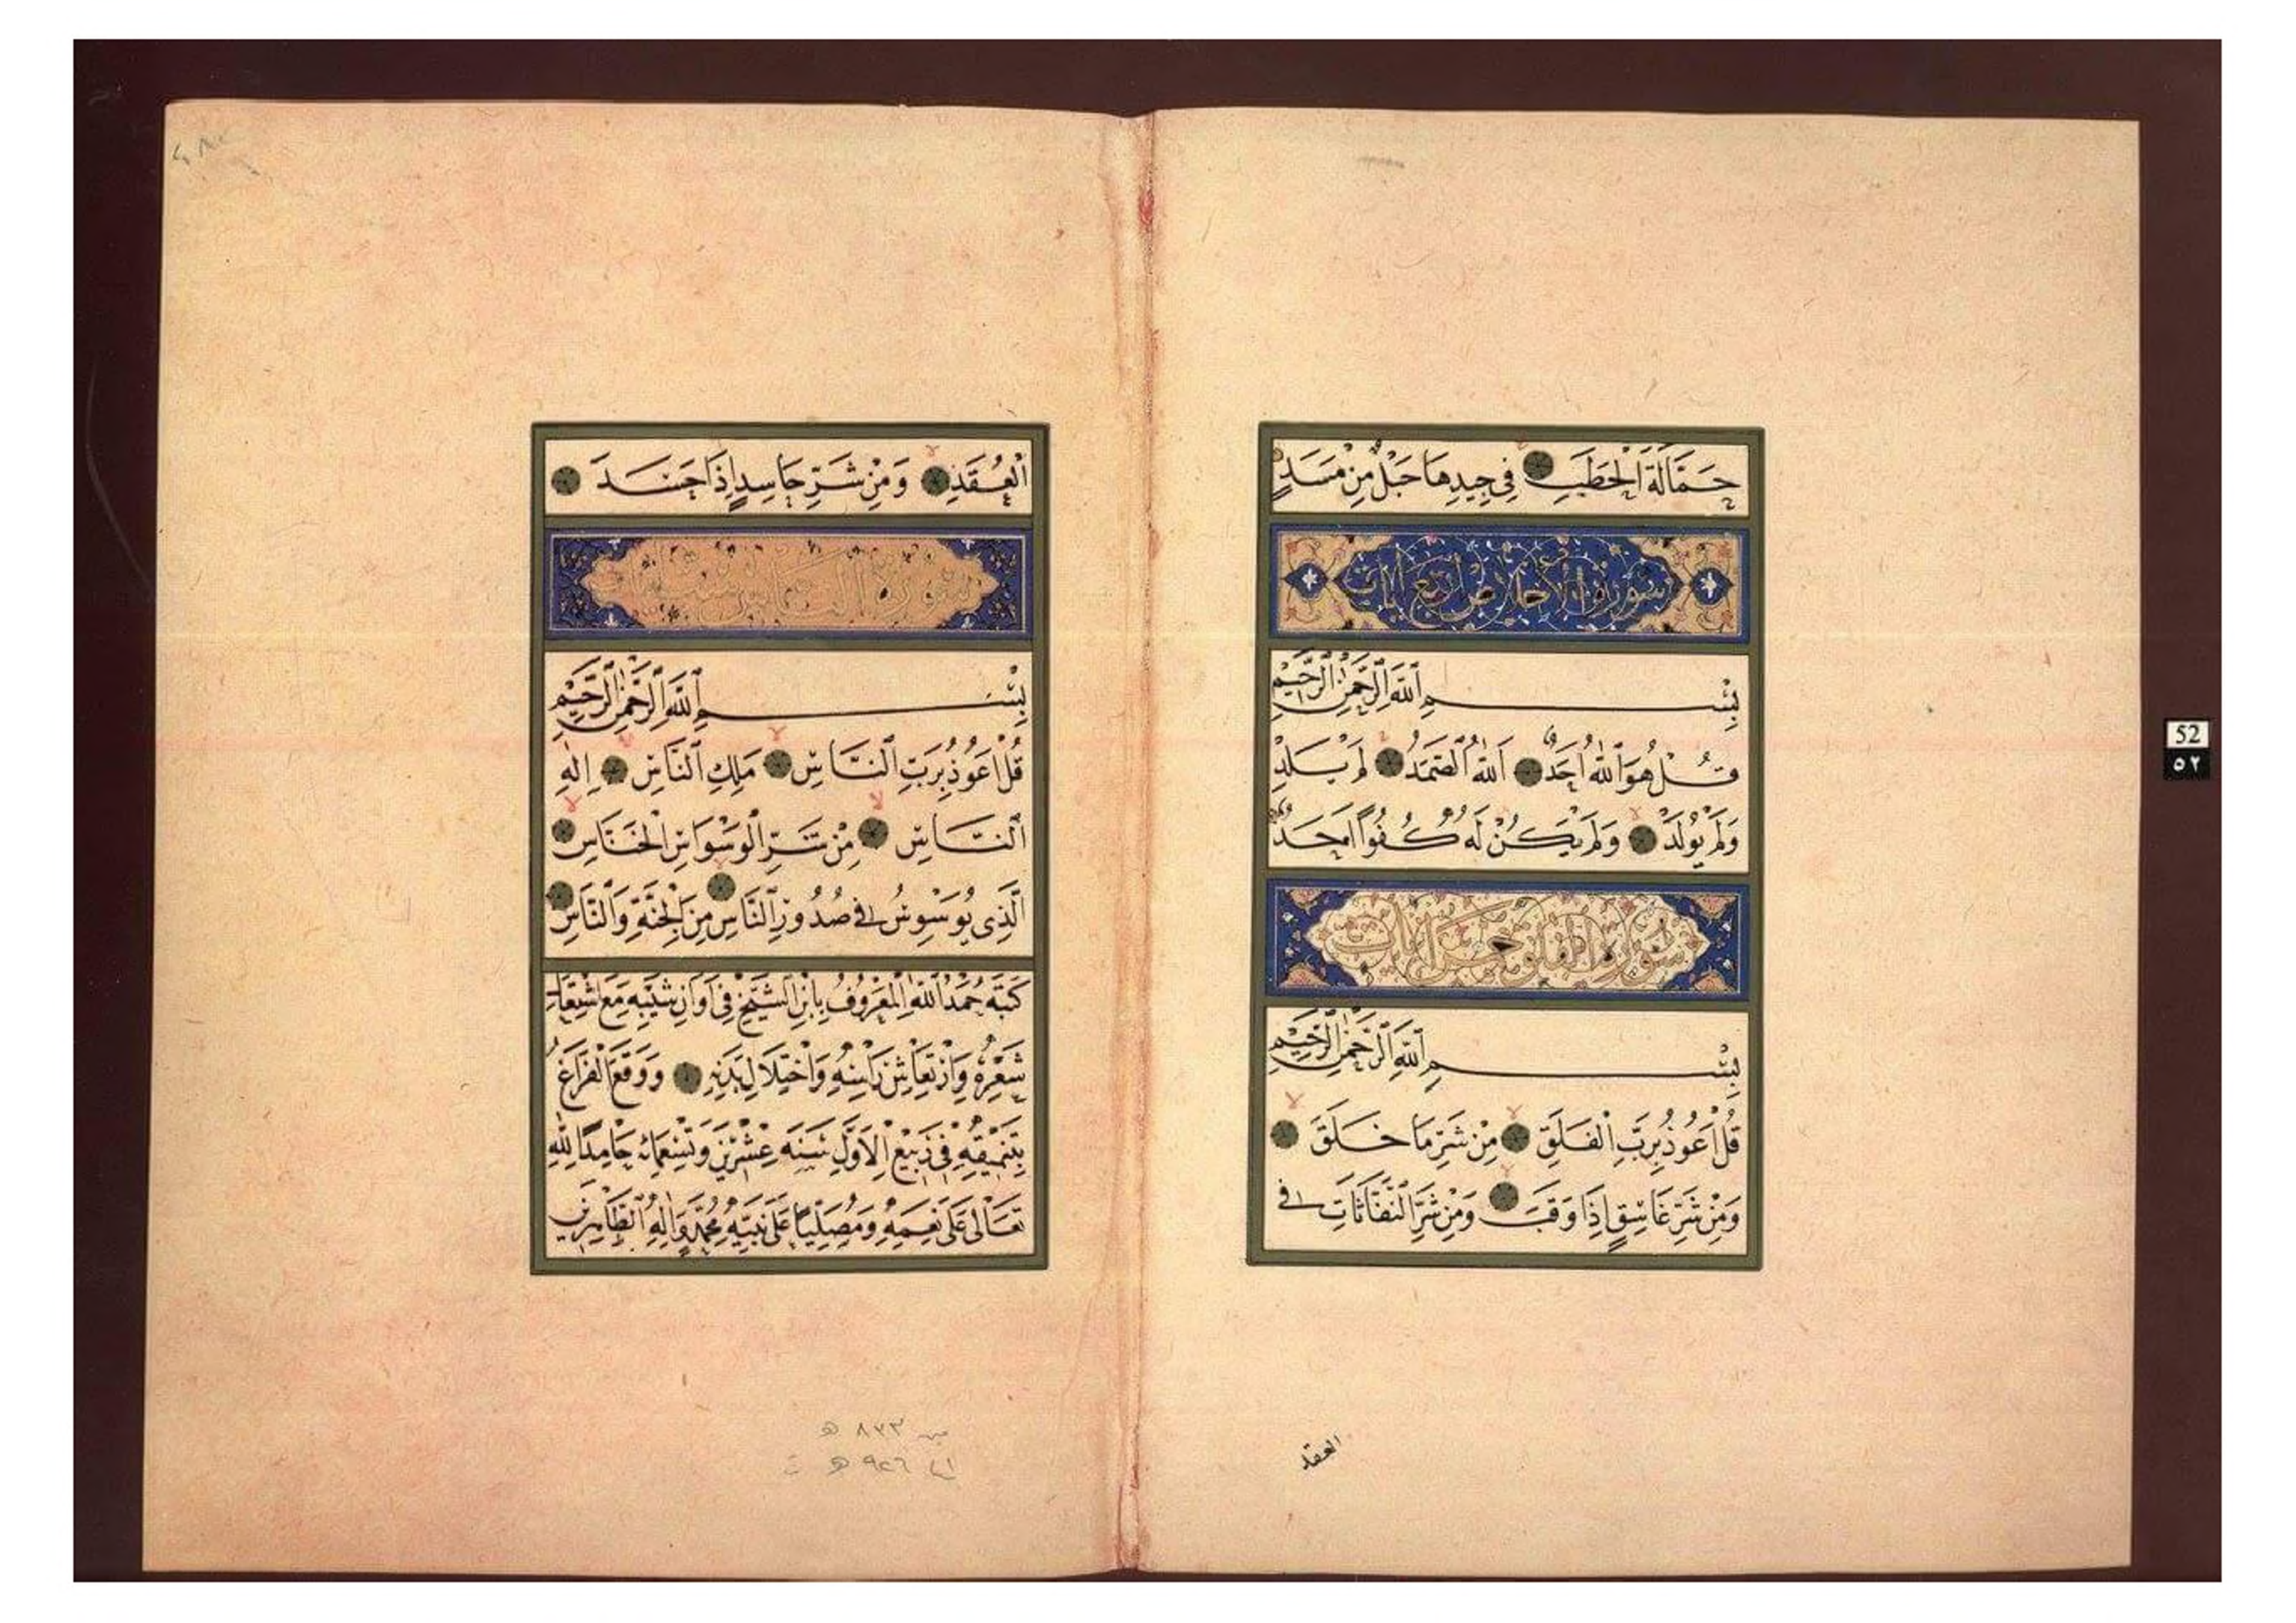 حَمَّالَةَ الْحَطَبِ فِي جِيدِهَا حَبْلٌ مِنْ مَسَدٍ
سورة الاخلاص اربع ايات
بِسْمِ اللَّهِ الرَّحْمَٰنِ الرَّحِيمِ
قُلْ هُوَ اللَّهُ أَحَدٌ اَللَّهُ الصَّمَدُ لَمْ يَلِدْ
وَلَمْ يُولَدْ وَلَمْ يَكُنْ لَهُ كُفُوًا أَحَدٌ
سورة الفلق خمس ايات
بِسْمِ اللَّهِ الرَّحْمَٰنِ الرَّحِيمِ
قُلْ اَعُوذُ بِرَبِّ الْفَلَقِ مِنْ شَرِّ مَا خَلَقَ
وَمِنْ شَرِّ غَاسِقٍ اِذَا وَقَبَ وَمِنْ شَرِّ النَّفَّاثَاتِ فِي
العقد
الْعُقَدِ وَمِنْ شَرِّ حَاسِدٍ اِذَا حَسَدَ
سورة الناس ست ايات
بِسْمِ اللَّهِ الرَّحْمَٰنِ الرَّحِيمِ
قُلْ اَعُوذُ بِرَبِّ النَّاسِ مَلِكِ النَّاسِ اِلٰهِ
النَّاسِ مِنْ شَرِّ الْوَسْوَاسِ الْخَنَّاسِ
اَلَّذِي يُوَسْوِسُ فِي صُدُورِ النَّاسِ مِنَ الْجِنَّةِ وَالنَّاسِ
كَتَبَهُ حَمْدُ اللَّهِ الْمَعْرُوفُ بِابْنِ الشَّيْخِ فِي اَوَانِ شَيْبِهِ مَعَ
شَعْرِهِ وَارْتِعَاشِ رَأْسِهِ وَاخْتِلَالِ بَدَنِهِ وَوَقَعَ الْفَرَاغُ
بِتَنْمِيقِهِ فِي رَبِيعِ الْاَوَّلِ سَنَةَ عِشْرِينَ وَتِسْعِمِائَه حَامِدًا لِلَّهِ
تَعَالٰى عَلٰى نِعَمِهِ وَمُصَلِّيًا عَلٰى نَبِيِّهِ مُحَمَّدٍ وَاٰلِهِ الطَّاهِرِينَ
٨٣٣ ه
٩٢٦ ه
52
٥٢